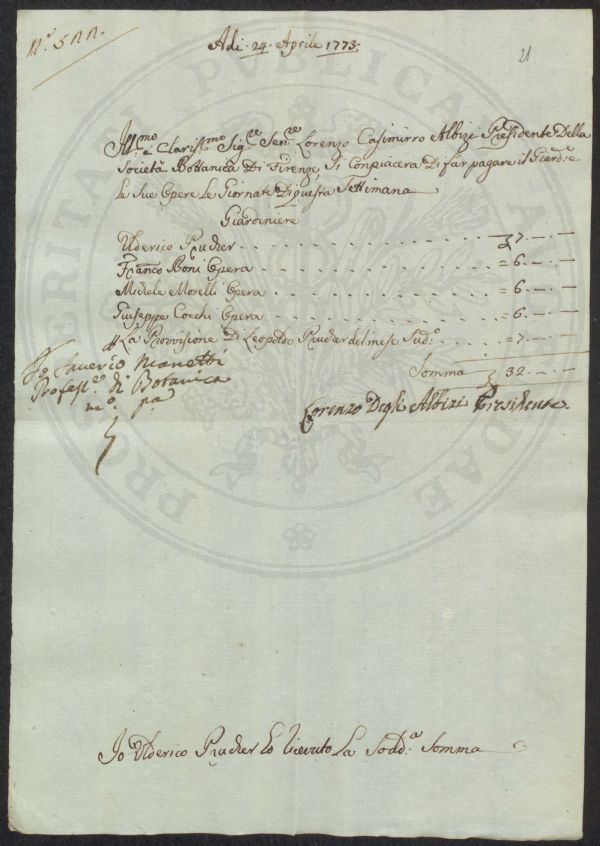 Nº 522.
Adi 24 Aprile 1773.
21
Ill.mo e Claris.mo Sig.re Sen.re Lorenzo Casimirro Albizi Presidente Della
Societá Bottanica Di Firenze, Si Conpiacera Di far pagare il Giard.re
Le Sue Opere Le Giornate Di questa Settimana
Giardiniere
Ulderico Prucher . . . 7.—.—
Franco Boni Opera . . . = 6.—.—
Michele Morelli Opera . . . = 6.—.—
Giuseppe Cocchi Opera . . . = 6.—.—
La Provvisione Di Leopoldo Prucher del mese Sud.o = 7.—.—
Somma 32.—.—
Io Saverio Manetti
Profess.re di Botanica
mº. pa
Lorenzo Degli Albizi Presidente.
Io Ulderico Prucher Lo ricevuto La Sodd.a Somma
PROSPERITATI PUBLICAE